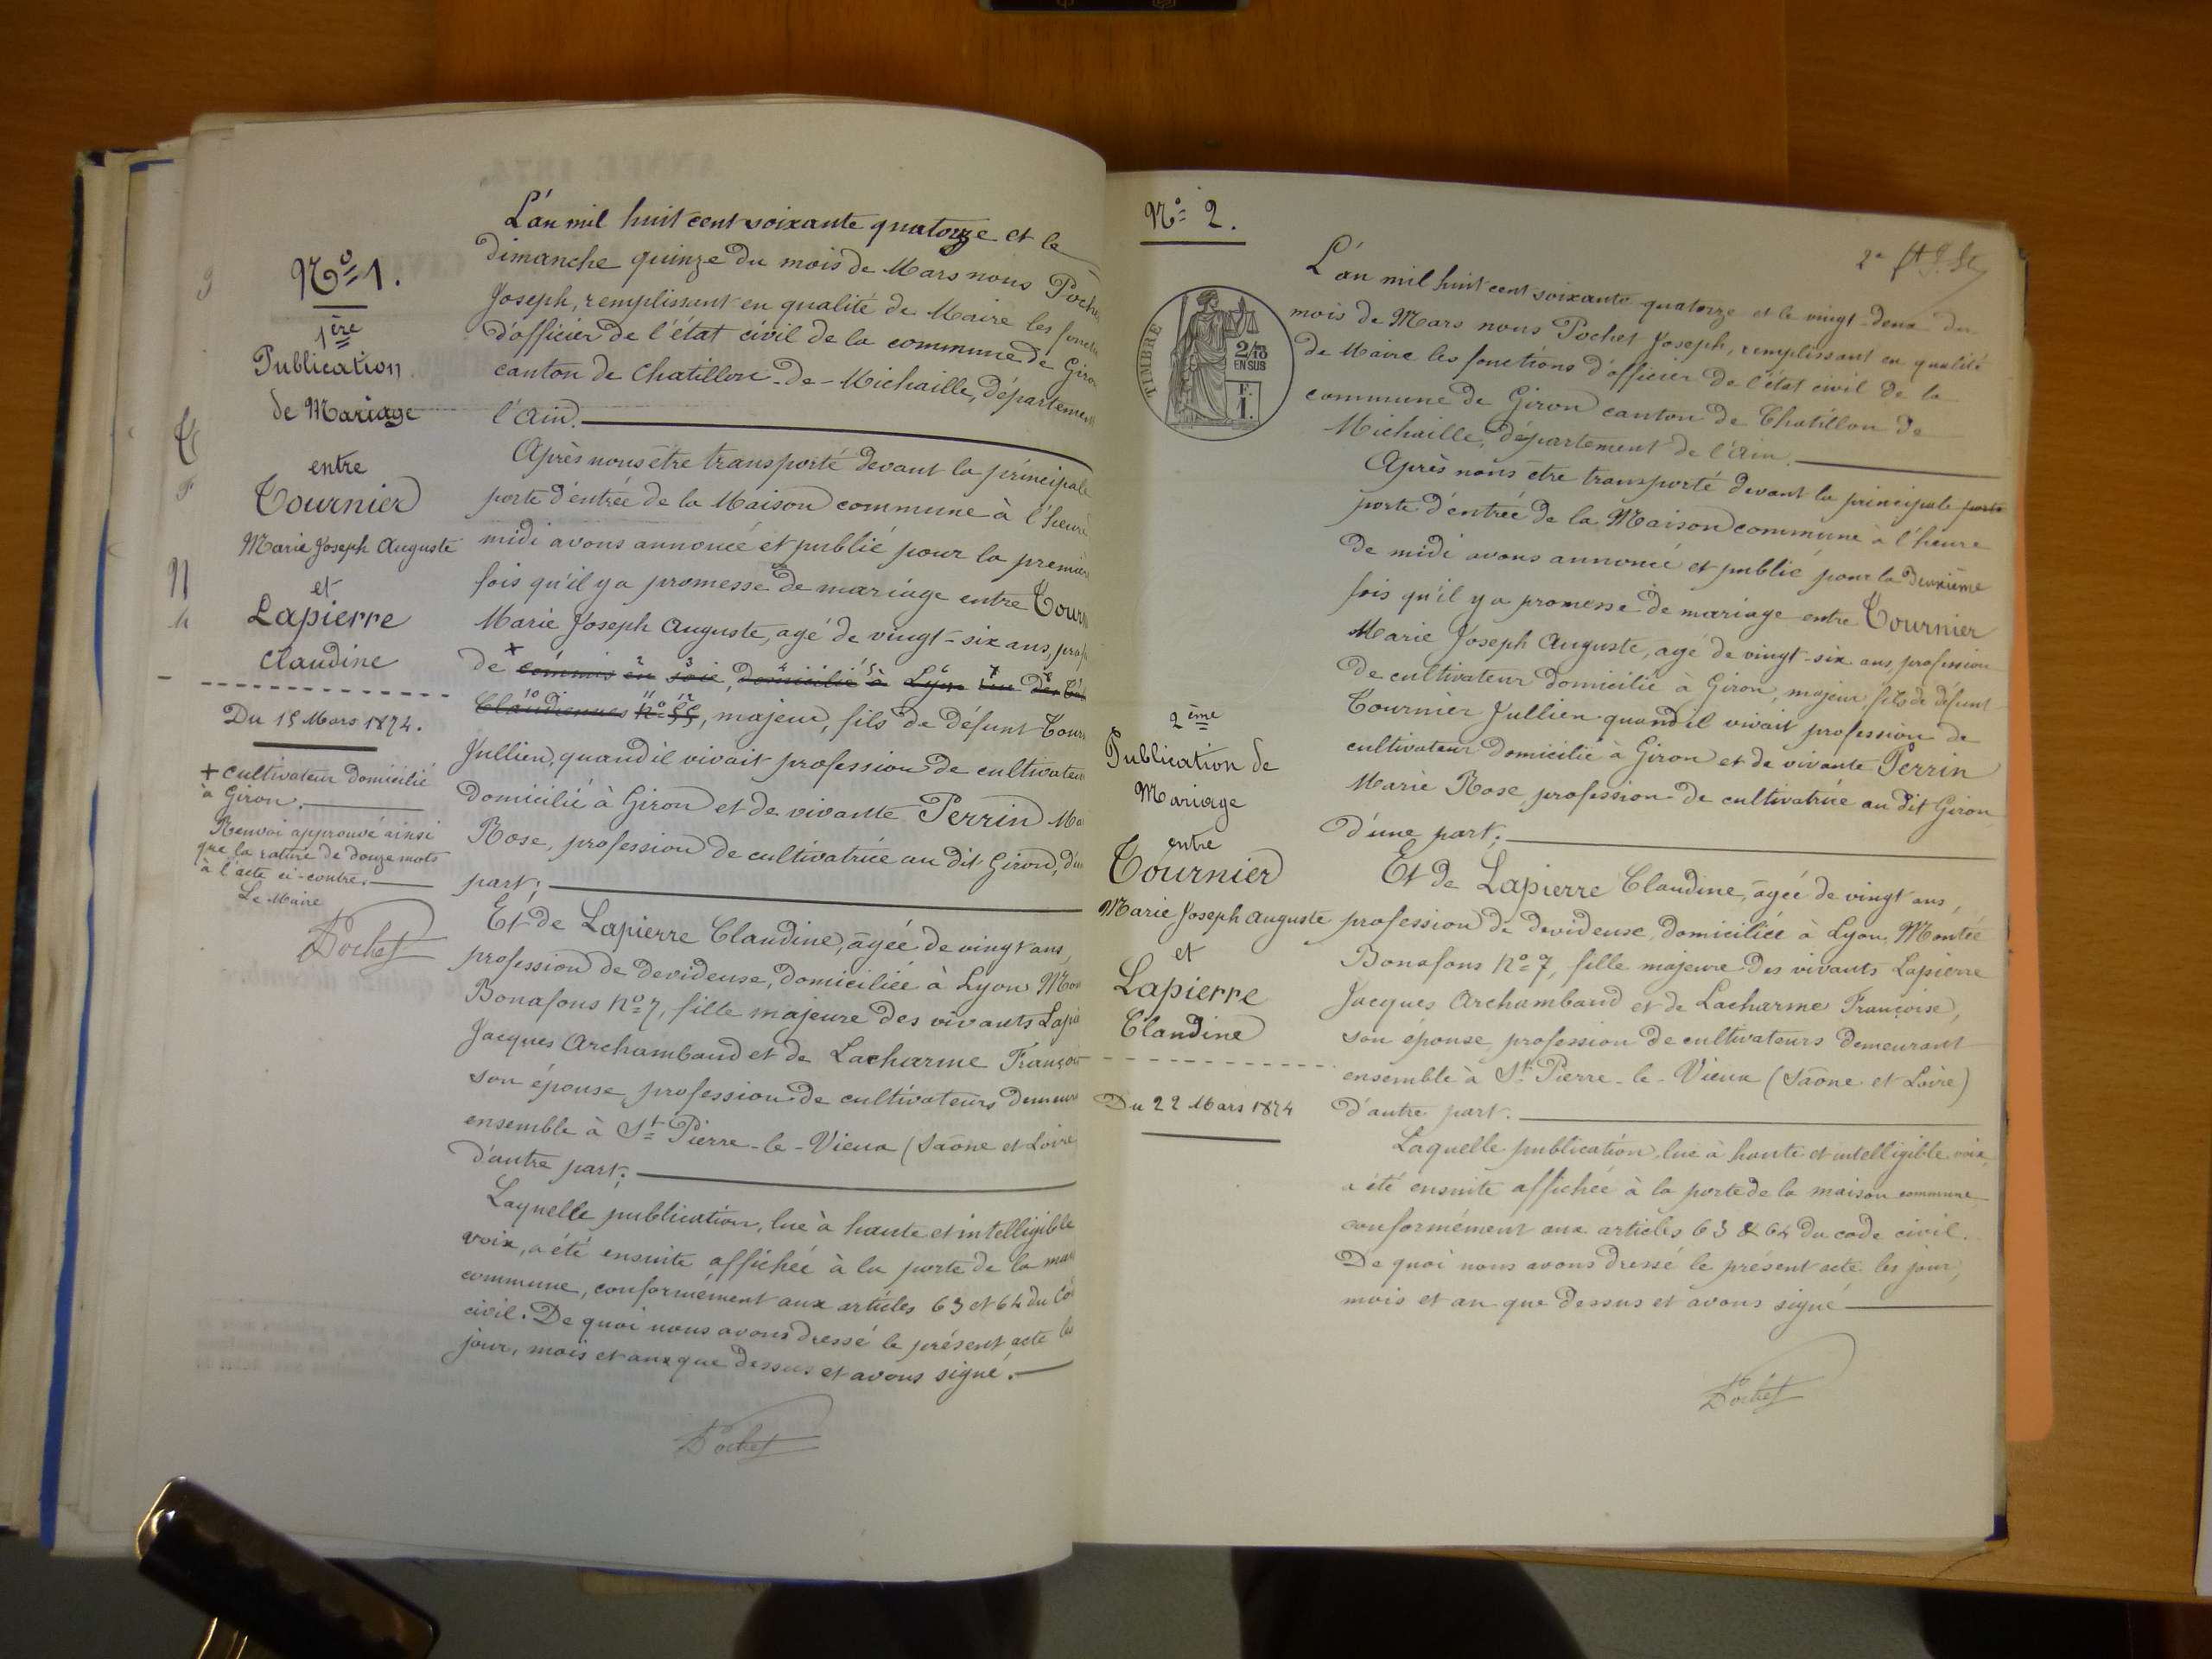 No 1.
1ère
Publication
de Mariage
entre
Tournier
Marie Joseph Auguste
et
Lapierre
Claudine
Du 15 Mars 1874.
+ cultivateur domicilié
à Giron.
Renvoi approuvé ainsi
que la rature de douze mots
à l'acte ci-contre.
Le Maire
Pochet
L'an mil huit cent soixante quatorze et le
dimanche quinze du mois de Mars nous Poche
Joseph, remplissant en qualité de Maire les foncti
d'officier de l'état civil de la commune de Giro
canton de Chatillon-de-Michaille, départemen
l'Ain.
Après nous être transporté devant la principale
porte d'entrée de la Maison commune à l'heure
midi avons annoncé et publié pour la premièr
fois qu'il y a promesse de mariage entre Tourn
Marie Joseph Auguste, agé de vingt-six ans, prof
de + commis en soie, domicilié à Lyon rue des
Claudiennes No 55, majeur, fils de défunt Tour
Jullien, quand il vivait profession de cultivateu
domicilié à Giron et de vivante Perrin Ma
Rose, profession de cultivatrice au dit Giron, d'u
part;
Et de Lapierre Claudine, âgée de vingt ans,
profession de devideuse, domiciliée à Lyon Mon
Bonafons No 7, fille majeure des vivants Lapie
Jacques Archambaud et de Lacharme Françoi
son épouse, profession de cultivateurs demeur
ensemble à St Pierre-le-Vieux (Saône et Loire
d'autre part;
Laquelle publication, lue à haute et intelligible
voix, a été ensuite affichée à la porte de la mai
commune, conformément aux articles 63 et 64 du Co
civil. De quoi nous avons dressé le présent acte les
jour, mois et an que dessus et avons signé.
Pochet
No 2.
TIMBRE
2/10
EN SUS
F.
1.
2ème
Publication de
Mariage
entre
Tournier
Marie Joseph Auguste
et
Lapierre
Claudine
Du 22 Mars 1874
L'an mil huit cent soixante-quatorze et le vingt-deux du
mois de Mars nous Pochet Joseph, remplissant en qualité
de Maire les fonctions d'officier de l'état civil de la
commune de Giron canton de Chatillon de
Michaille, département de l'Ain.
Après nous être transporté devant la principale porte
porte d'entrée de la Maison commune à l'heure
de midi avons annoncé et publié pour la deuxième
fois qu'il y a promesse de mariage entre Tournier
Marie Joseph Auguste, agé de vingt-six ans, profession
de cultivateur domicilié à Giron, majeur, fils de défunt
Tournier Jullien quand il vivait profession de
cultivateur domicilié à Giron et de vivante Perrin
Marie Rose, profession de cultivatrice au dit Giron
d'une part;
Et de Lapierre Claudine, âgée de vingt ans,
profession de devideuse, domiciliée à Lyon, Montée
Bonafons No 7, fille majeure des vivants Lapierre
Jacques Archambaud et de Lacharme Françoise,
son épouse, profession de cultivateurs demeurant
ensemble à St Pierre-le-Vieux (Saône et Loire)
d'autre part.
Laquelle publication, lue à haute et intelligible voix,
a été ensuite affichée à la porte de la maison commune
conformément aux articles 63 & 64 du code civil.
De quoi nous avons dressé le présent acte les jour,
mois et an que dessus et avons signé
Pochet